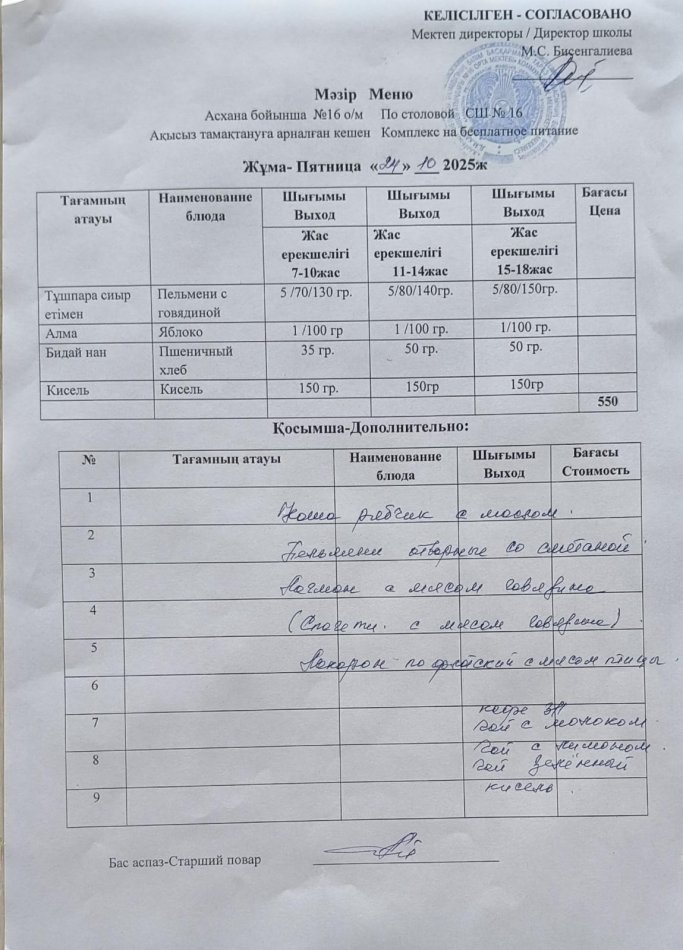 КЕЛІСІЛГЕН - СОГЛАСОВАНО
Мектеп директоры / Директор школы
М.С. Бисенгалиева
Мәзір Меню
Асхана бойынша №16 о/м По столовой СШ № 16
Ақысыз тамақтануға арналған кешен Комплекс на бесплатное питание
Жұма- Пятница «24» 10 2025ж
Тағамның атауы Наименование блюда Шығымы Выход Шығымы Выход Шығымы Выход Бағасы Цена
Жас ерекшелігі 7-10жас Жас ерекшелігі 11-14жас Жас ерекшелігі 15-18жас
Тұшпара сиыр етімен Пельмени с говядиной 5 /70/130 гр. 5/80/140гр. 5/80/150гр.
Алма Яблоко 1 /100 гр 1 /100 гр. 1/100 гр.
Бидай нан Пшеничный хлеб 35 гр. 50 гр. 50 гр.
Кисель Кисель 150 гр. 150гр 150гр
550
Қосымша-Дополнительно:
№ Тағамның атауы Наименование блюда Шығымы Выход Бағасы Стоимость
1
Каша рябчик с маслом.
2
Пельмени отварные со сметаной.
3
Лагман с мясом говядина
4
(Спагети. с мясом говядина)
5
Макарон по флотский с мясом птицы.
6
7
кофе 3/1
чай с молоком.
8
чай с лимоном.
чай зелённый
9
кисель.
Бас аспаз-Старший повар